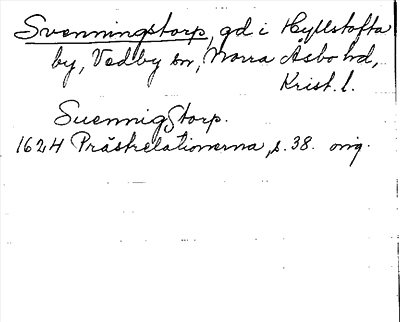 Svenningstorp, gd i Hyllstofta
by, Vedby sn, Norra Åsbo hd,
Krist. l.
SuennigStorp.
1624 Prästrelationerna, s. 38. orig.